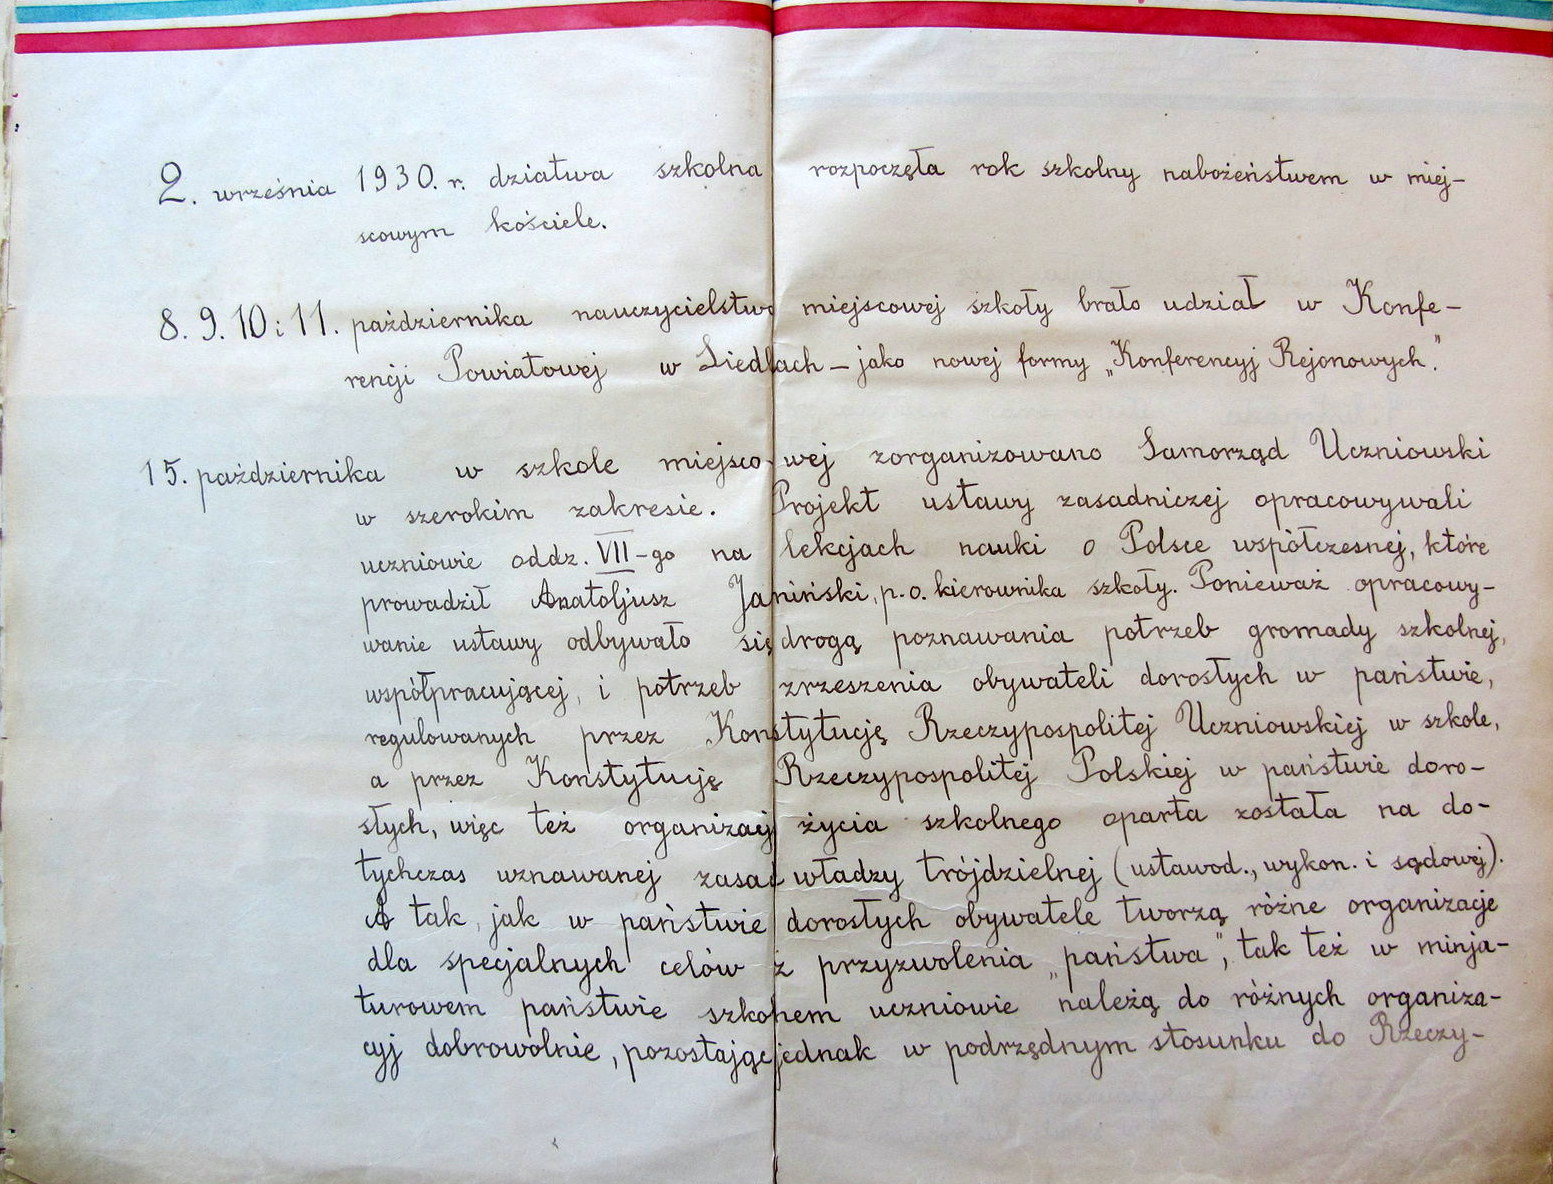 2. września 1930. r. dziatwa szkolna rozpoczęła rok szkolny nabożeństwem w miej-
scowym kościele.
8. 9. 10 i 11. października nauczycielstwo miejscowej szkoły brało udział w Konfe-
rencji Powiatowej w Siedlcach – jako nowej formy „Konferencyj Rejonowych."
15. października w szkole miejscowej zorganizowano Samorząd Uczniowski
w szerokim zakresie. Projekt ustawy zasadniczej opracowywali
uczniowie oddz. VII-go na lekcjach nauki o Polsce współczesnej, które
prowadził Anatoljusz Janiński, p.o. kierownika szkoły. Ponieważ opracowy-
wanie ustawy odbywało się drogą poznawania potrzeb gromady szkolnej,
współpracującej, i potrzeb zrzeszenia obywateli dorosłych w państwie,
regulowanych przez Konstytucję Rzeczypospolitej Uczniowskiej w szkole,
a przez Konstytucję Rzeczypospolitej Polskiej w państwie doro-
słych, więc też organizacj życia szkolnego oparta została na do-
tychczas uznawanej zasad władzy trójdzielnej (ustawod., wykon. i sądowej).
A tak, jak w państwie dorosłych obywatele tworzą różne organizacje
dla specjalnych celów z przyzwolenia „państwa", tak też w minja-
turowem państwie szkolnem uczniowie należą do różnych organiza-
cyj dobrowolnie, pozostając jednak w podrzędnym stosunku do Rzeczy-